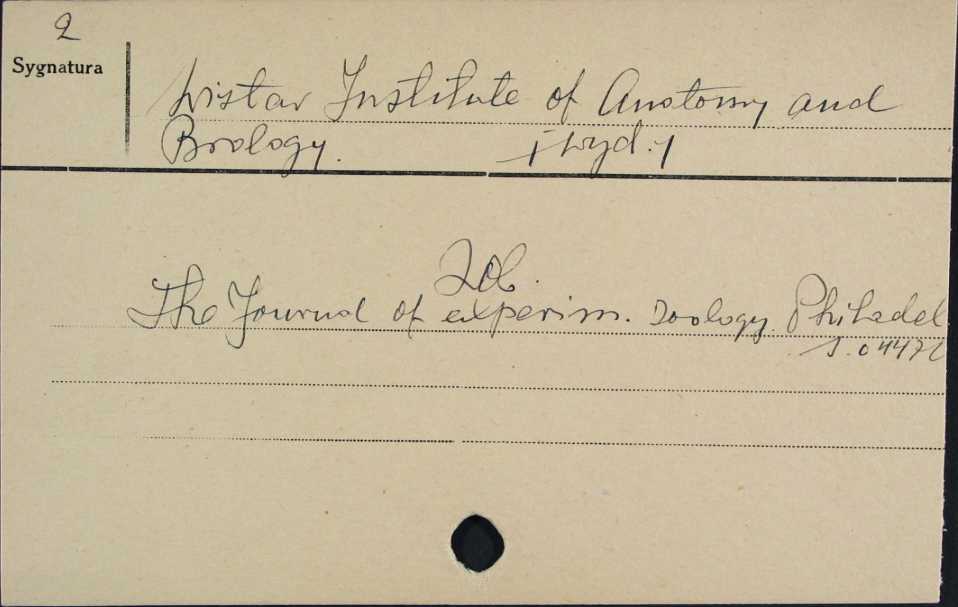 2
Sygnatura
Wistar Institute of Anatomy and
Biology. /wyd./
Zob.
The Journal of experim. zoology. Philadel